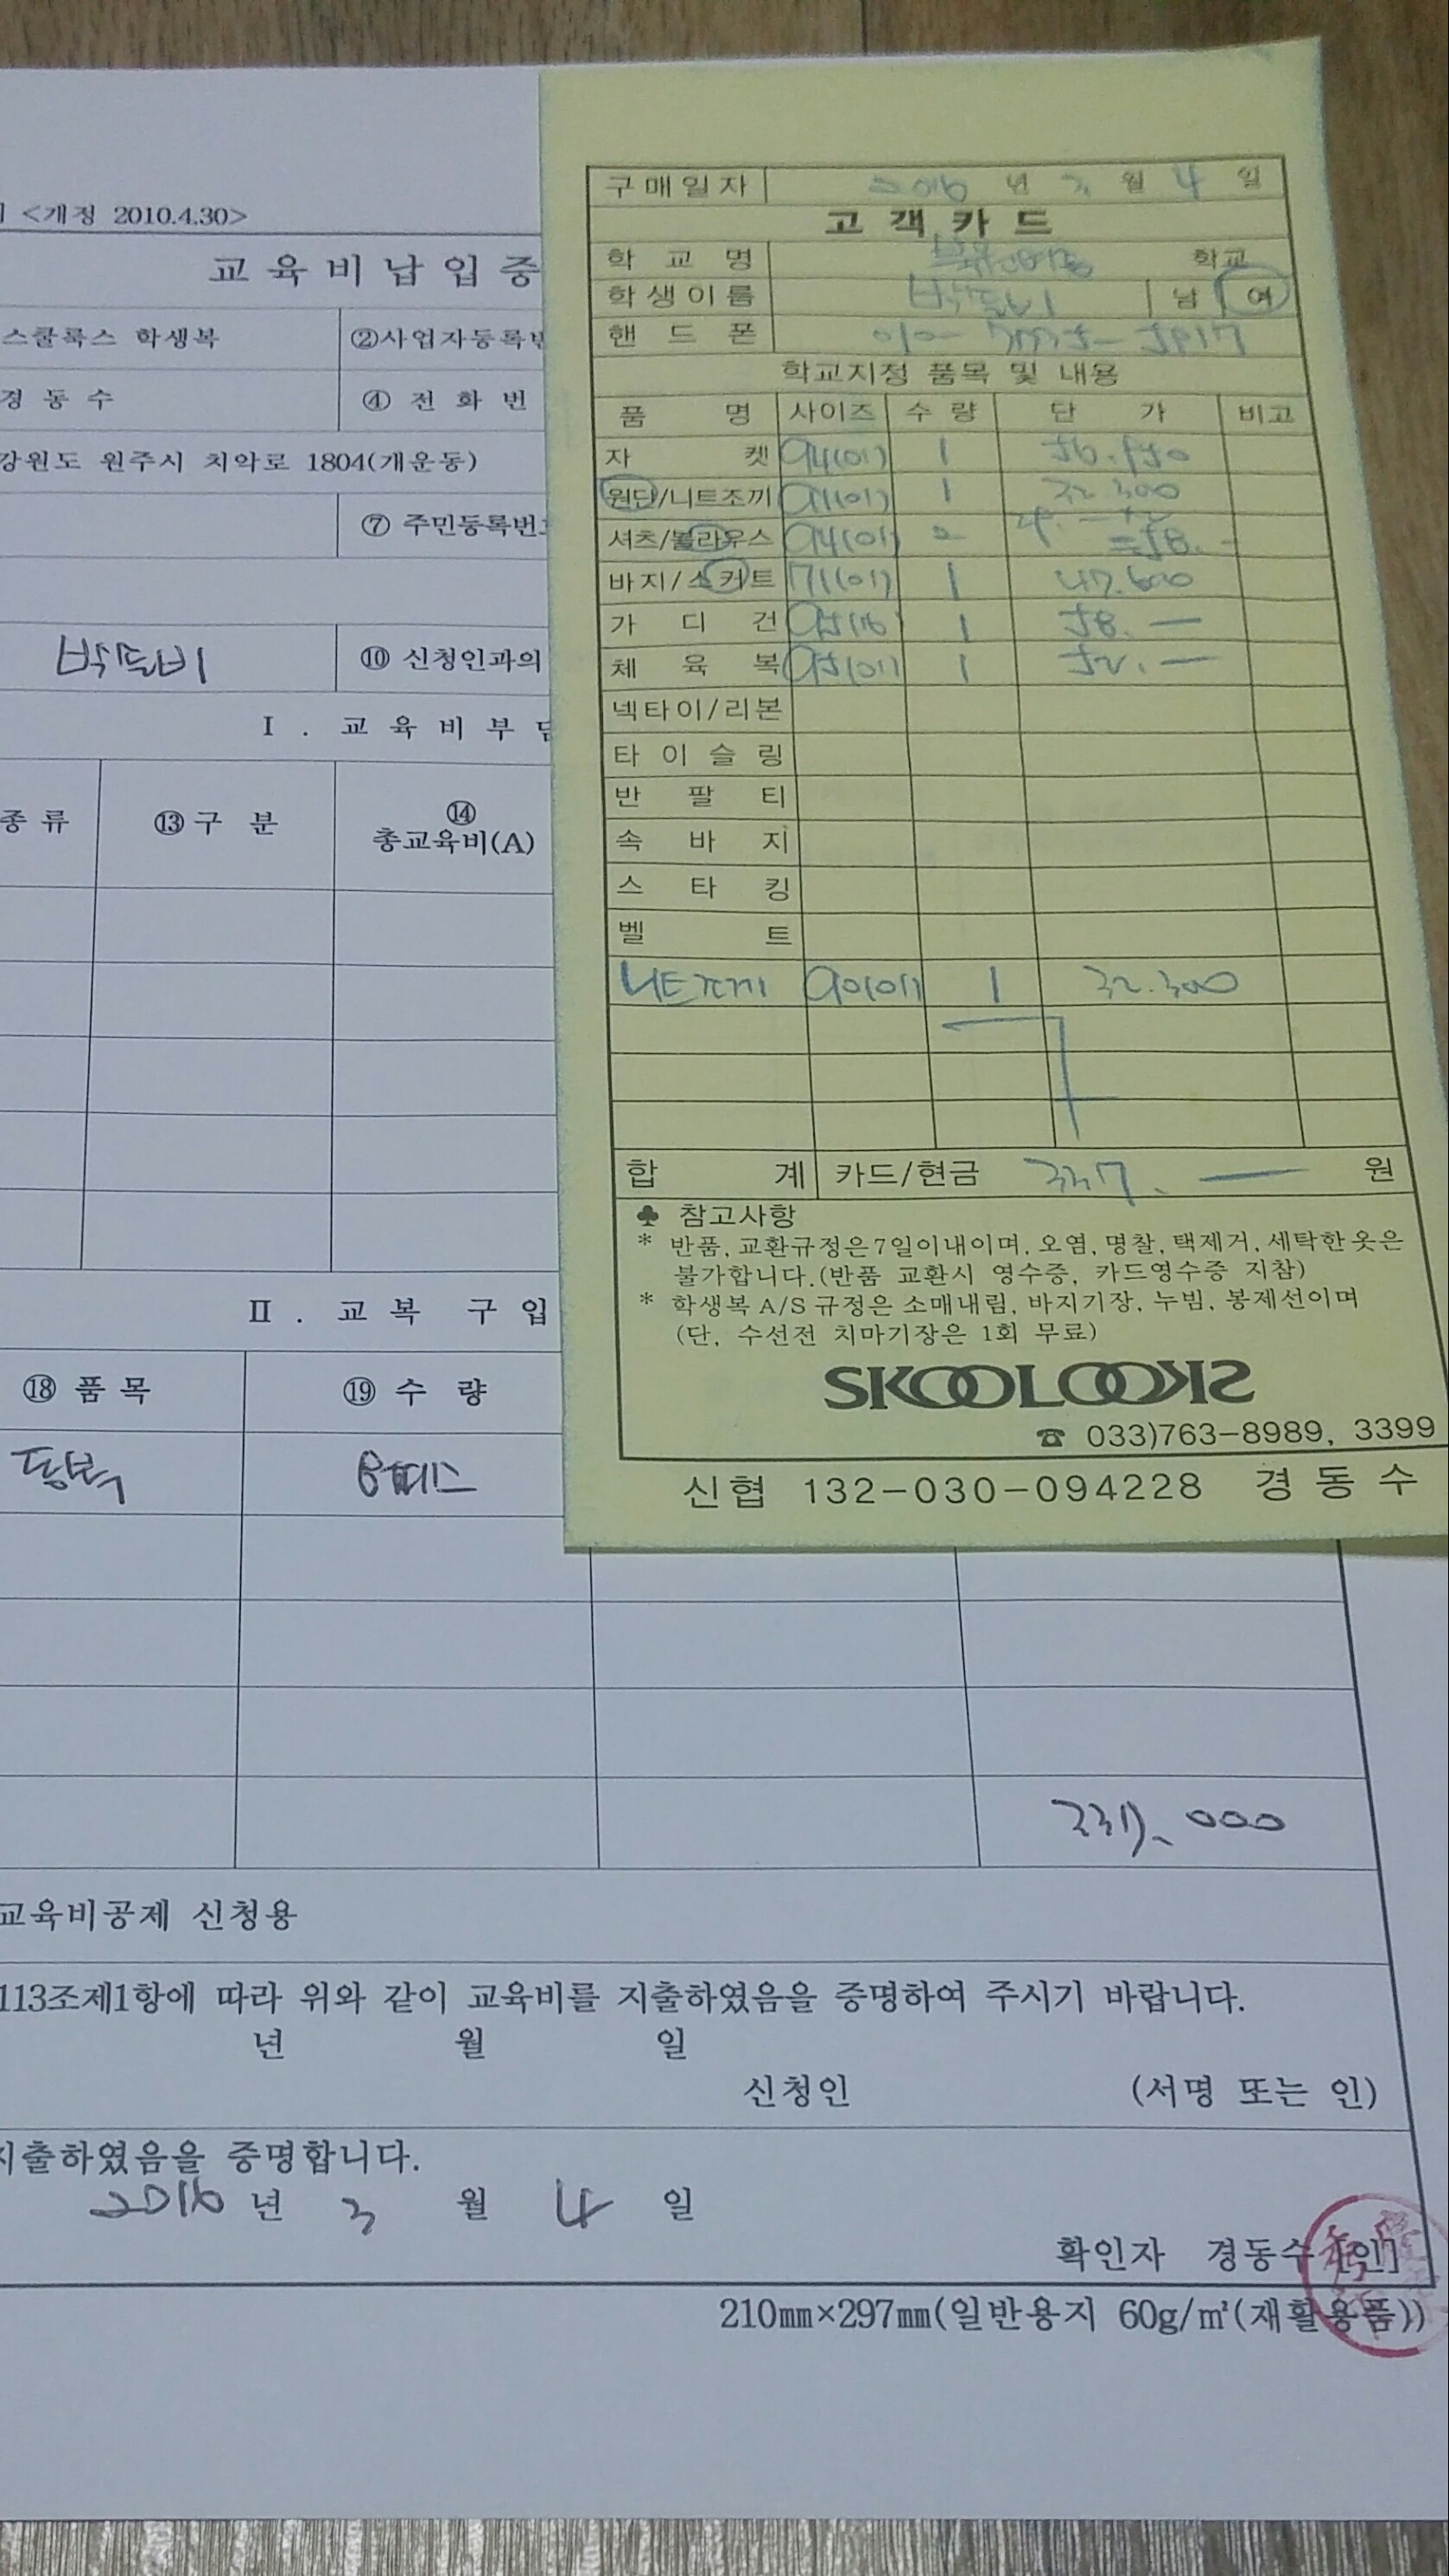 <개정 2010.4.30>
교육비납입증
스쿨룩스 학생복 ②사업자등록번
경동수 ④ 전화번
강원도 원주시 치악로 1804(개운동)
⑦ 주민등록번호
⑩ 신청인과의
Ⅰ. 교육비부담
종류 ⑬구 분 ⑭ 총교육비(A)
Ⅱ. 교복 구입
⑱ 품목 ⑲ 수 량
동복
337,000
교육비공제 신청용
113조제1항에 따라 위와 같이 교육비를 지출하였음을 증명하여 주시기 바랍니다.
년 월 일
신청인 (서명 또는 인)
지출하였음을 증명합니다.
2016 년 3 월 4 일
확인자 경동수 [인]
210㎜×297㎜(일반용지 60g/㎡(재활용품))
구매일자 2016 년 3 월 4 일
고객카드
학교명 학교
학생이름 남 여
핸드폰
학교지정 품목 및 내용
품명 사이즈 수량 단가 비고
자켓 94(01) 1
원단/니트조끼 91(01) 1 32.300
셔츠/블라우스 94(01) 2 =58.-
바지/스커트 71(01) 1 47.600
가디건 1 58.—
체육복 95(01) 1 52.—
넥타이/리본
타이슬링
반팔티
속바지
스타킹
벨트
니트조끼 90(01) 1 32.300
합계 카드/현금 337.— 원
♣ 참고사항
* 반품, 교환규정은 7일이내이며, 오염, 명찰, 택제거, 세탁한 옷은
불가합니다.(반품 교환시 영수증, 카드영수증 지참)
* 학생복 A/S 규정은 소매내림, 바지기장, 누빔, 봉제선이며
(단, 수선전 치마기장은 1회 무료)
SKOOLOOKS
☎ 033)763-8989, 3399
신협 132-030-094228 경동수